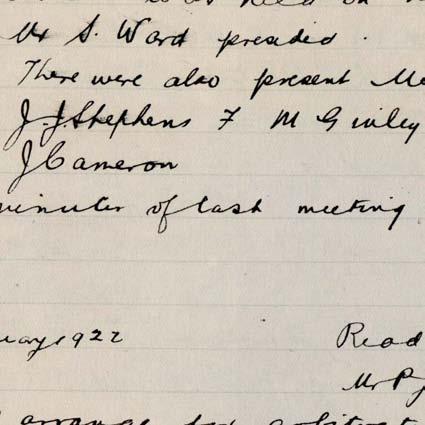 was held on
Mr S. Ward presided.
There were also present Me
J. J. Stephens F McGinley
J Cameron
minutes of last meeting
uary 1922 Read
Mr P
arrange for arbitrat